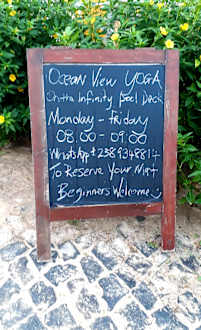 Ocean View YOGA
On the Infinity Pool Deck
Monday - Friday
08:00 - 09:00
WhatsApp +238 9348814
To Reserve Your Mat
Beginners Welcome